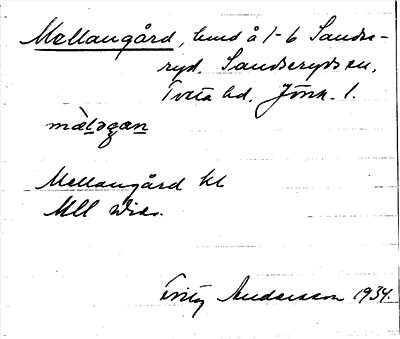 Mellangård, hmd å 1-6 Sands-
ryd. Sandseryds sn,
Tveta hd. Jönk. l.
Mellangård hl
Fritz Andersson 1934.